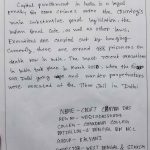 Capital punishment in India is a legal
penalty for some crimes under the country's
main substantive penal legislation, the
Indian Penal Code, as well as other laws.
Executions are carried out by hanging.
Currently there are around 488 prisoners on
death row in India. The most recent executions
in India took place in March 2020, when the
2012 Delhi gang rape and murder perpetrators
were executed at the Tihar Jail in Delhi
NAME - CADET
REG NO -
COLLEGE -
BATTALION - BENGAL BN NCC
GROUP - KALYANI
DIRECTORATE - WEST BENGAL & SIKKIM